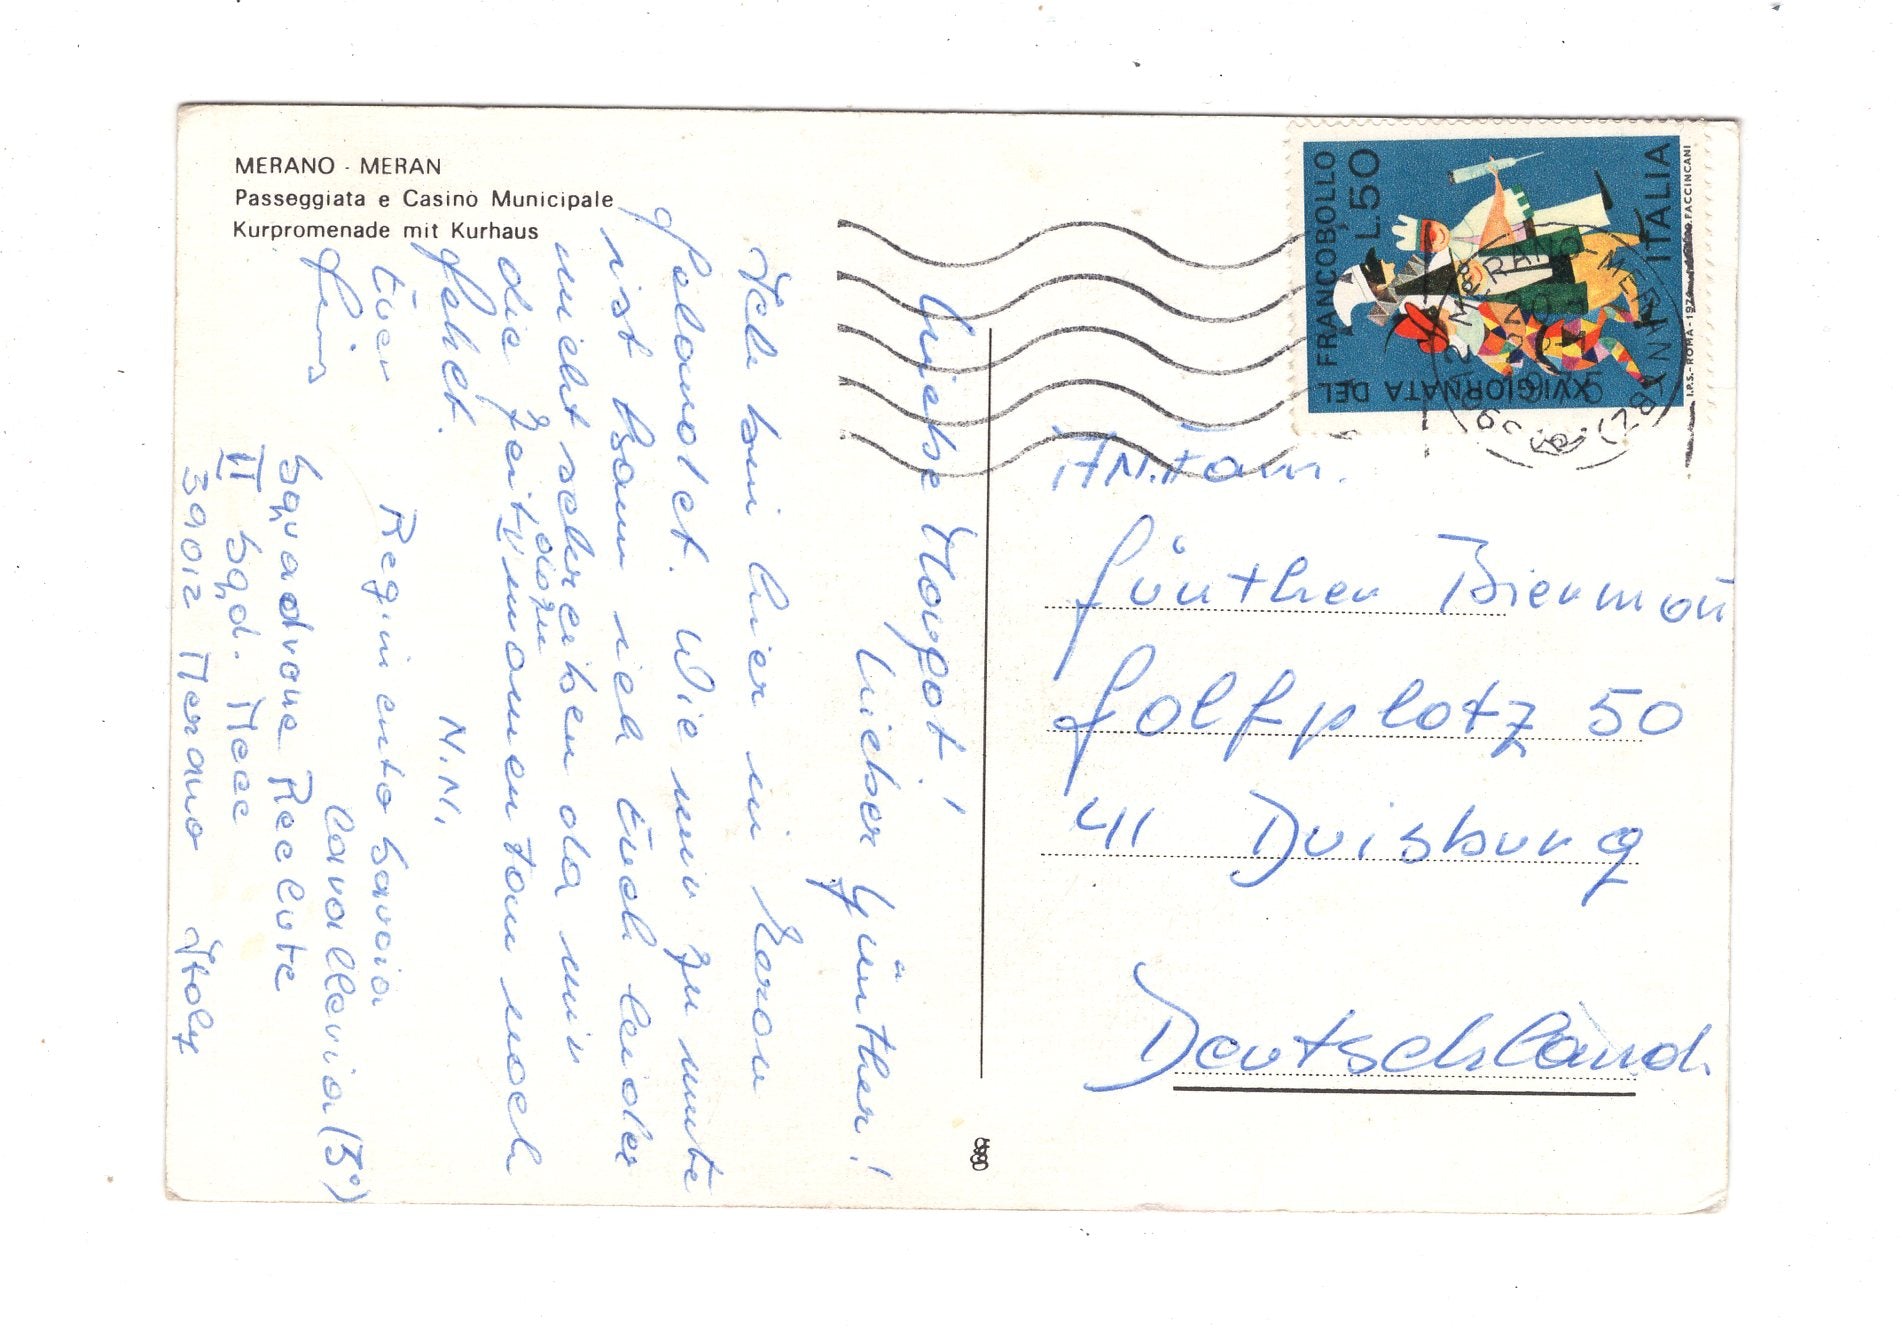 MERANO - MERAN
Passeggiata e Casinò Municipale
Kurpromenade mit Kurhaus
Liebe Margot!
Lieber Günther!
Ich bin hier in Meran
gelandet. Wie mir zu mute
ist kann ich Euch leider
nicht schreiben da mir
die Zeit momentan noch
dazu
fehlet.
Euer
N.N.
Regimento Savoia
Cavalleria (3°)
Squadrone Reclute
II Sqd. Mecc
39012 Merano Italy
FRANCOBOLLO
L. 50
XVI GIORNATA DEL
ITALIA
I.P.S. - ROMA - 1974
FACCINCANI
AN. Fam.
Günther Biermann
Golfplatz 50
41 Duisburg
Deutschland